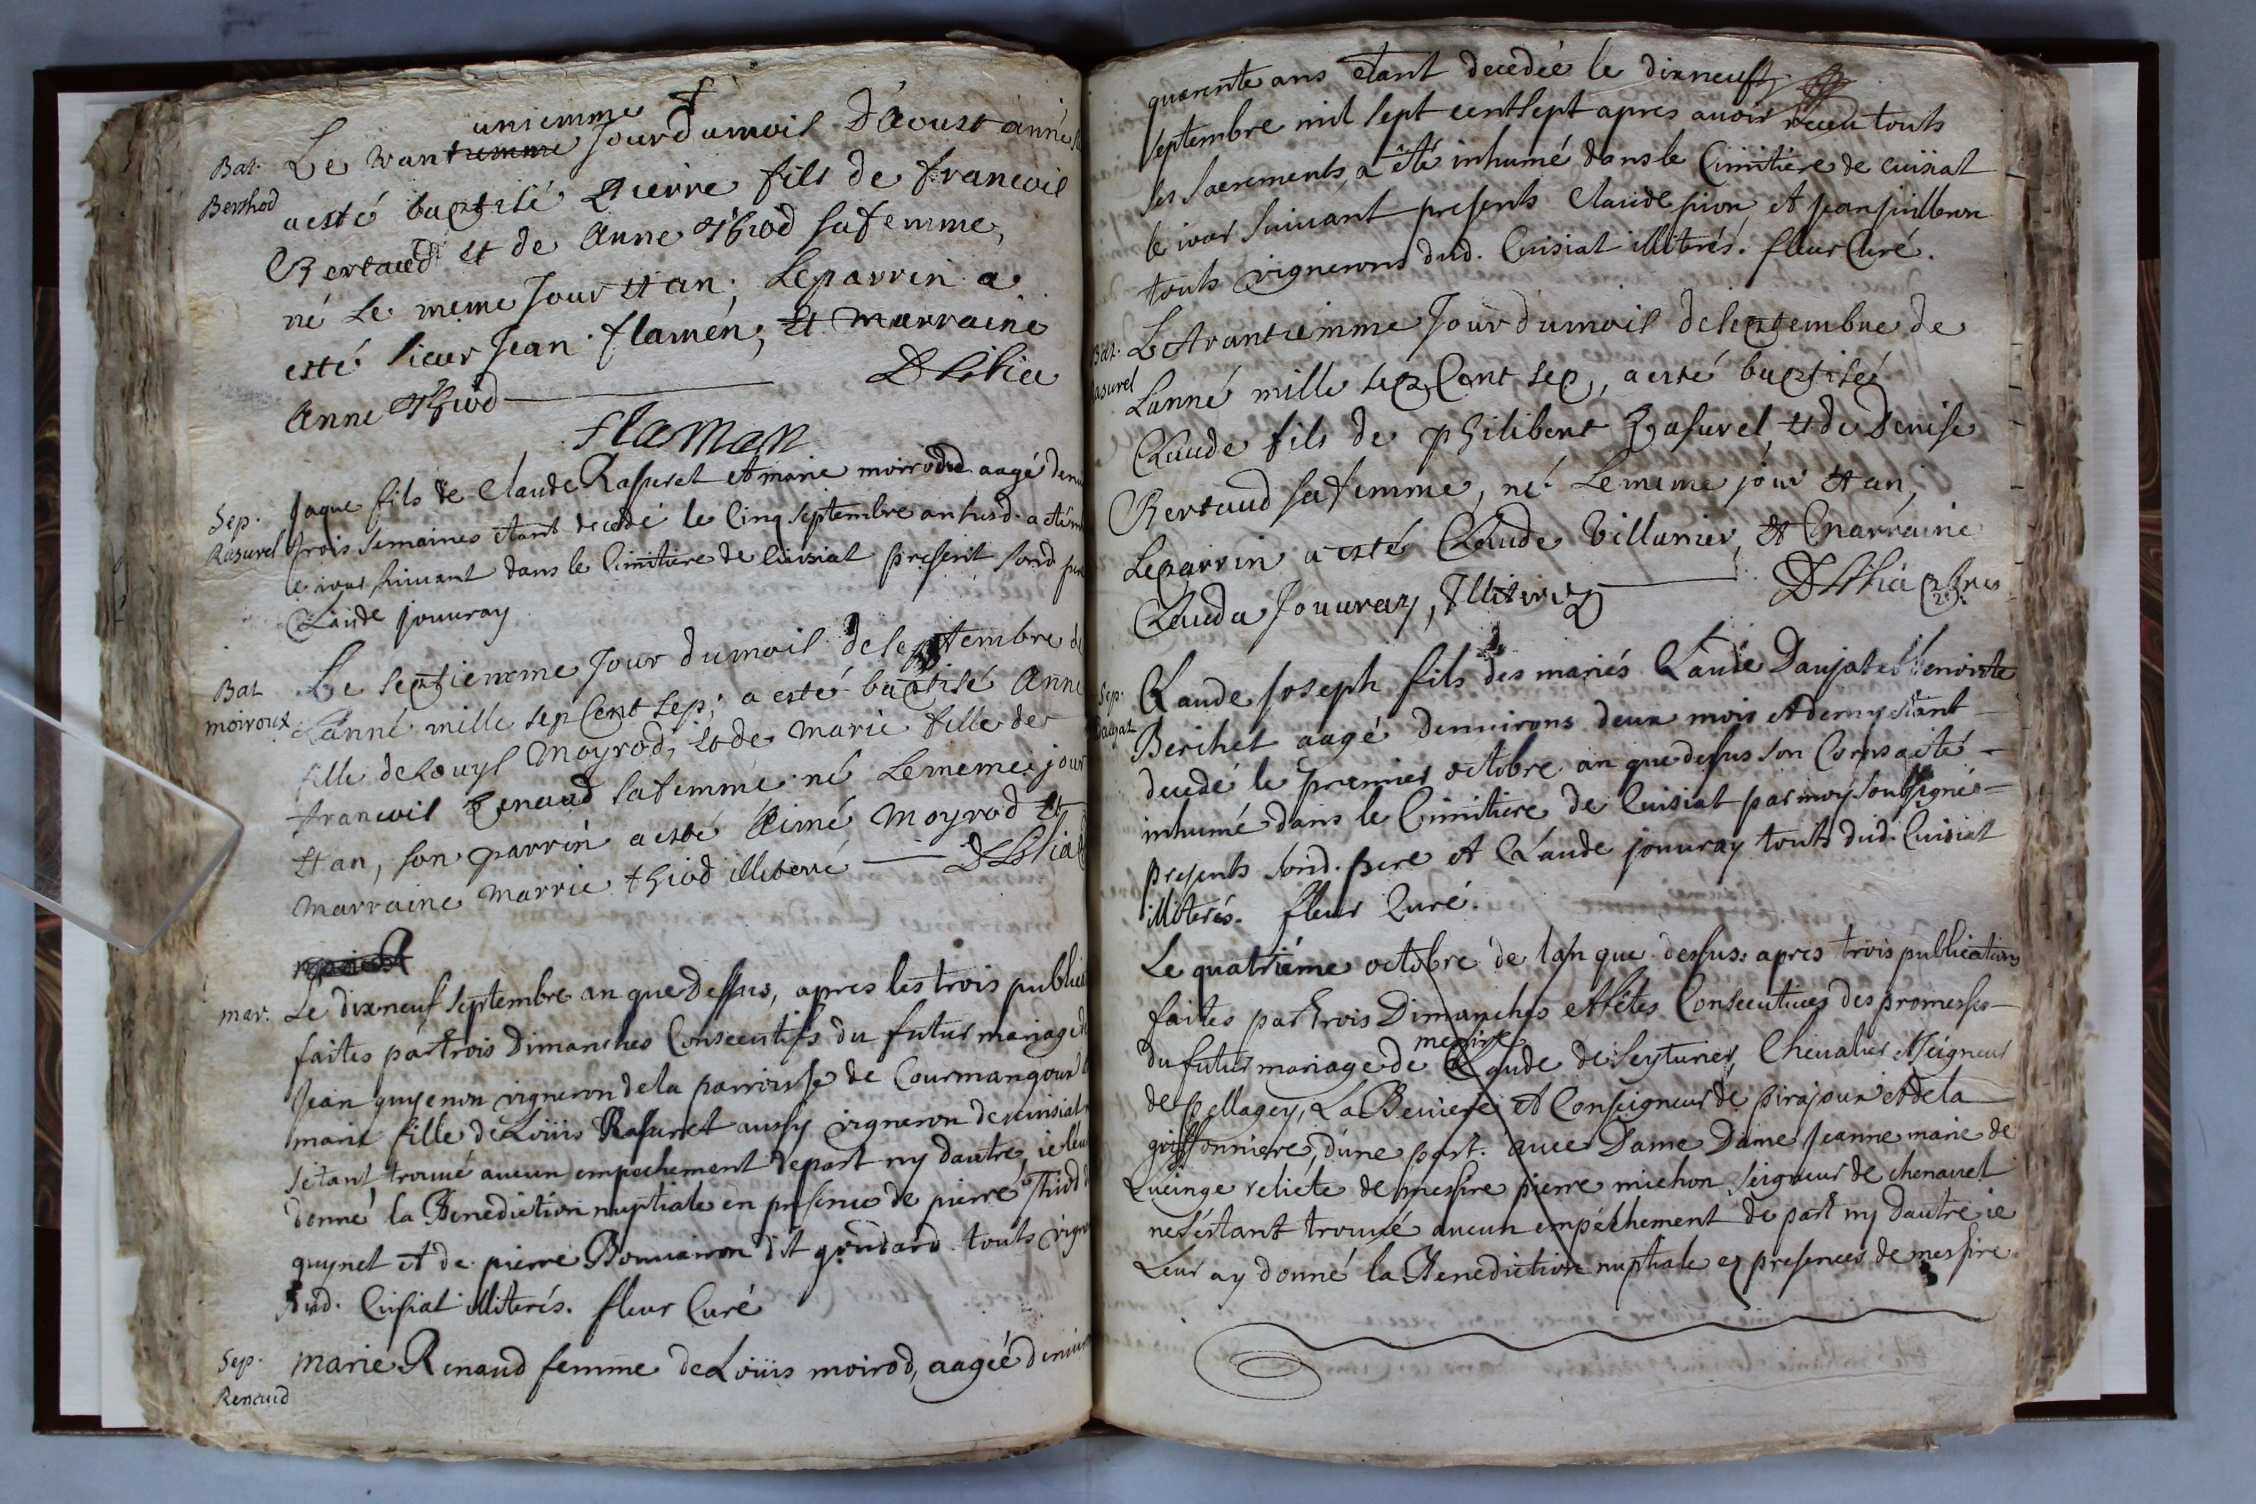 uniemme
Bat. Le vantiemme Jour du mois D'Aoust année
Berthod a esté baptisé Pierre fils de francois
Bertaud et de Anne Thiod sa femme,
né Le meme Jour et an; Le parrin a
esté sieur Jean flamen, et marraine
Anne Thiod
Flaman
Sep. Jaque fils de Claude Rasurel et marie moirod aagé
Rasurel trois semaines etant decedé le Cinq septembre an susd. a eté
le iour suiuant dans le Cimitiere de Cuisiat present sond
Claude jouuray
Bat. Le septiemme Jour du mois de septembre de
moiroux Lanné mille sep Cent sep; a esté baptisé Anne
fille de Louys Moyrod, et de Marie fille de
francois Renaud sa femme né Le meme jour
et an, son parrin a esté Aimé Moyrod et
marraine Marrie thiod illiterré
mar. Le dixneuf septembre an que Dessus, apres les trois
faites par trois Dimanches Consecutifs du futur mariage
Jean guyenon vigneron de la parroisse de Courmangoux
marie fille de Loüis Rasurel aussy vigneron de cuisiat
s'etant trouué aucun empechement de part ny dautre ie
donné la Benediction nuptiale en presence de pierre Thiod
guynet et de pierre Bonnairon dit goudard touts
dud. Cuisiat illiterés. fleur Curé
Sep. marie Renaud femme de Loüis moirod, aagée
Renaud
quarente ans etant decedée le dixneuf
septembre mil sept cent sept apres auoir receu touts
les sacrements, a êté inhumé dans le Cimitiere de cuisiat
le iour suiuant presents Claude pion et Jean
touts vignerons dud. Cuisiat illiterés. fleur Curé.
Bat. Le trantiemme Jour du mois de septembre de
Rasurel Lanné mille sep Cent sep, a esté baptisé
Claude fils de philibert Rasurel et de Denise
Bertaud sa femme, né Le meme jour et an,
Le parrin a esté Claude Villanier, et Marraine
Clauda Jouuray, Illiterez
Sep. Claude Joseph fils des mariés Claude Daujat et benoite
Daujat Berthet aagé denuirons deux mois et demy etant
decedé le premier octobre an que dessus son Corps a eté
inhumé dans le Cimitiere de Cuisiat par moy soubsigné
presents sond. pere et Claude jouuray touts dud. Cuisiat
illiterés. fleur Curé.
Le quatriéme octobre de lan que dessus apres trois publications
faites par trois Dimanches et fêtes Consecutiues des promesses
messire
du futur mariage de Claude de Seyturier, Cheualier, seigneur
de pellagey, La Beuiere et Conseigneur de pirajoux et de la
griffonniere, d'une part. auec Dame Dame Jeanne marie de
Lucinge relicte de messire pierre michon seigneur de chenauel
ne s'êtant trouué aucun empéchement de part ny dautre ie
Leur ay donné la Benediction nuptiale es presences de messire